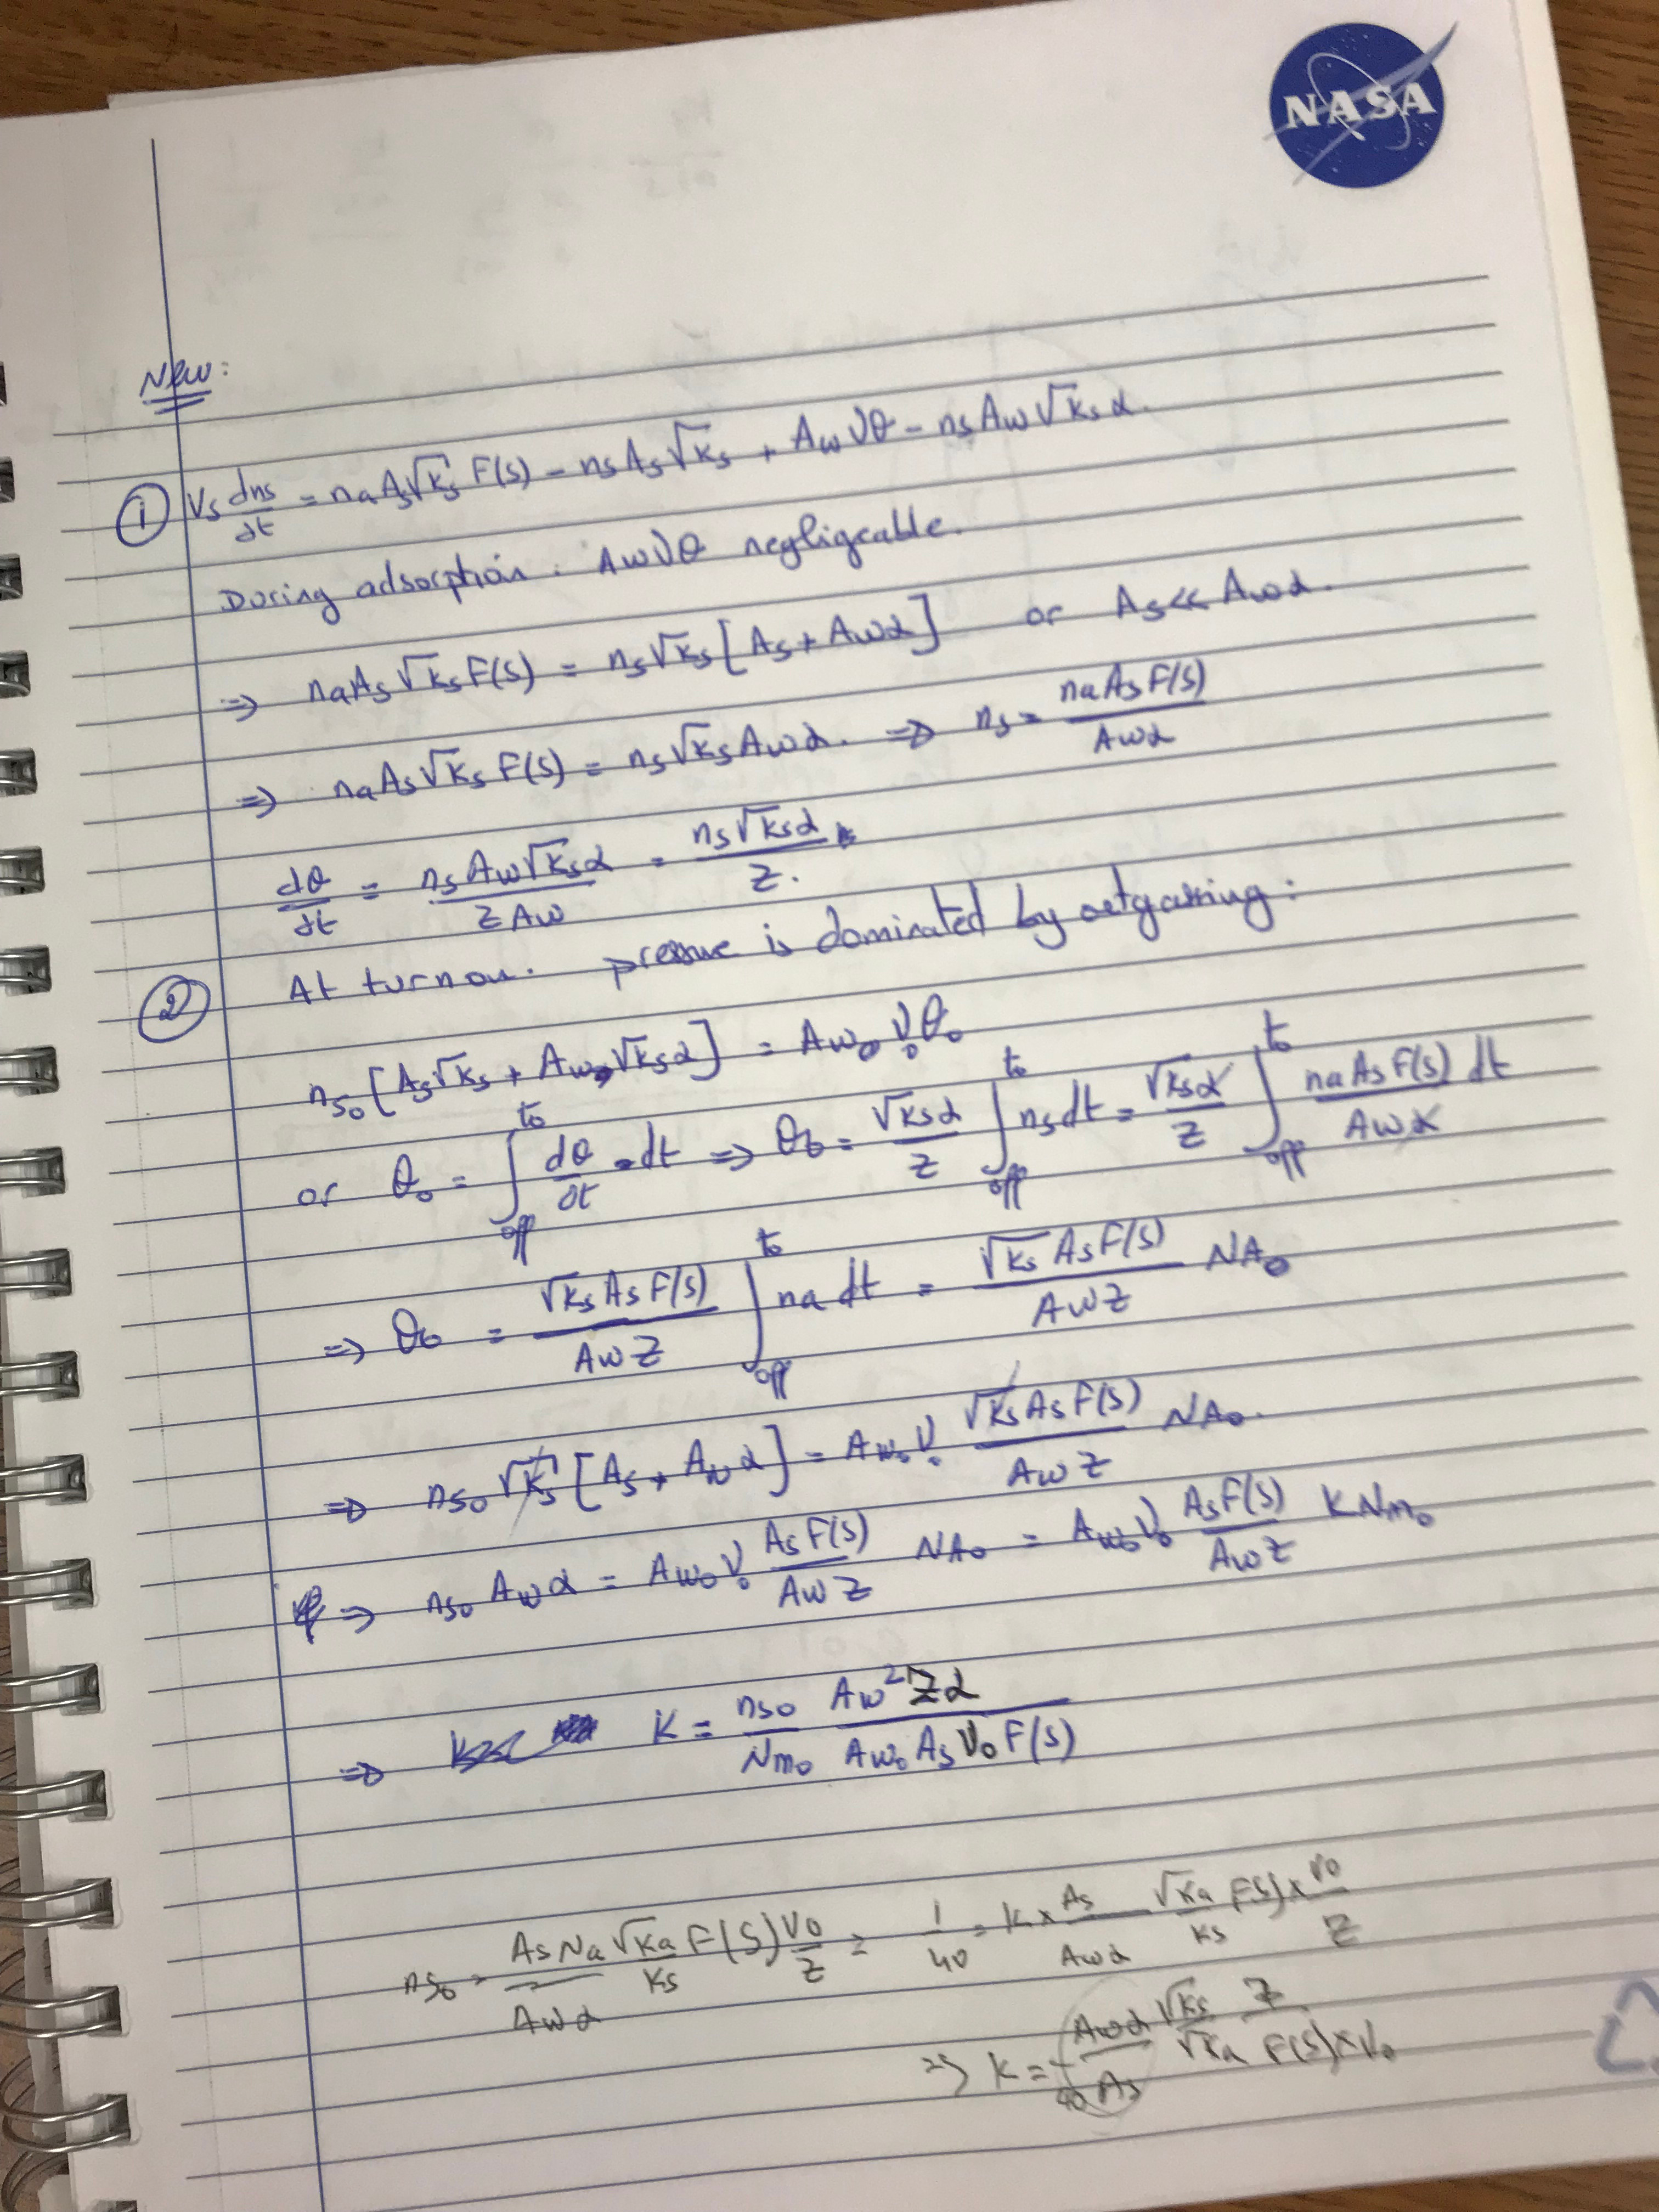 NASA
New:
① Vs dns/dt = na As √Ks F(S) − ns As √Ks + Aw νθ − ns Aw √Ks α.
During adsorption. Aw νθ negligeable.
⇒ na As √Ks F(S) = ns √Ks [As + Aw α] or As << Aw α.
⇒ na As √Ks F(S) = ns √Ks Aw α. ⇒ ns = na As F(S) / Aw α
dθ/dt = ns Aw √Ks α / Z Aw = ns √Ks α / Z.
② At turn on. pressure is dominated by outgassing:
ns₀ [As √Ks + Aw₀ √Ks α] = Aw₀ ν₀ θ₀
or θ₀ = ∫off^t₀ dθ/dt dt ⇒ θ₀ = √Ks α / Z ∫off^t₀ ns dt = √Ks α / Z ∫off^t₀ na As F(S) / Aw α dt
⇒ θ₀ = √Ks As F(S) / Aw Z ∫off^t₀ na dt = √Ks As F(S) / Aw Z NA₀
⇒ ns₀ √Ks [As + Aw α] = Aw₀ ν₀ √Ks As F(S) / Aw Z NA₀.
⇒ ns₀ Aw α = Aw₀ ν₀ As F(S) / Aw Z NA₀ = Aw₀ ν₀ As F(S) / Aw Z K Nm₀
⇒ K = ns₀ / Nm₀ Aw² Z α / Aw₀ As ν₀ F(S)
ns₀ = As Na / Aw α √Ka / Ks F(S) ν₀ / Z = 1/40 = K × As / Aw α √Ka / Ks F(S) × ν₀ / Z
⇒ K = Aw α / 40 As √Ks / √Ka Z / F(S) × ν₀